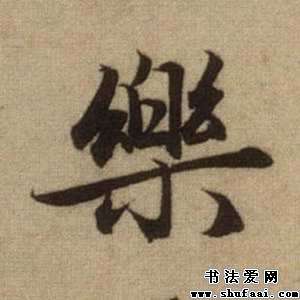 樂
书法爱网
www.shufaai.com